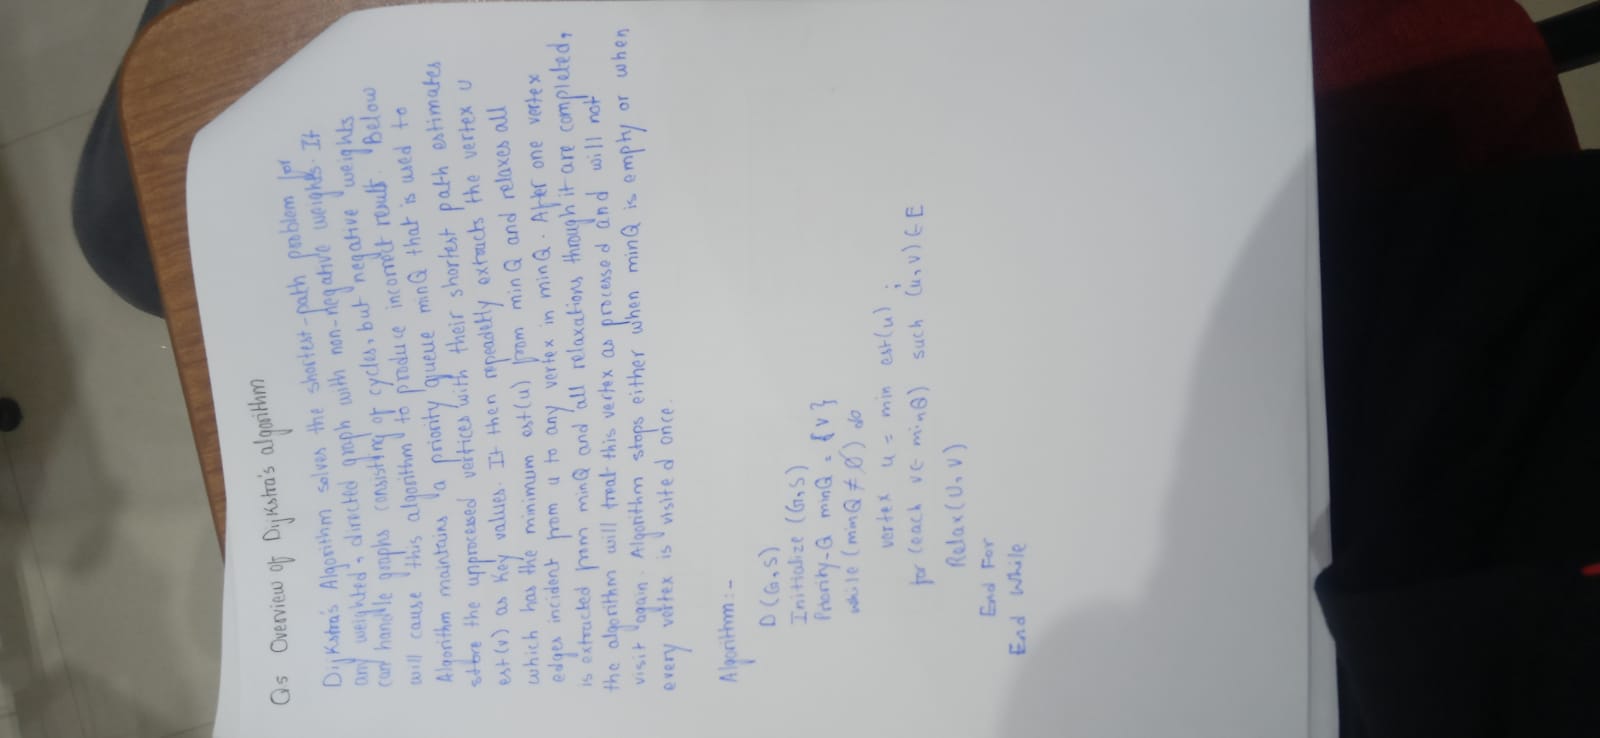 Q5 Overview of Dijkstra's algorithm
Dijkstra's Algorithm solves the shortest-path problem for
any weighted, directed graph with non-negative weights. It
can handle graphs consisting of cycles, but negative weights
will cause this algorithm to produce incorrect result. Below
Algorithm maintains a priority queue minQ that is used to
store the unprocessed vertices with their shortest path estimates
est(v) as key values. It then repeadetly extracts the vertex u
which has the minimum est(u) from minQ and relaxes all
edges incident from u to any vertex in minQ. After one vertex
is extracted from minQ and all relaxations through it are completed,
the algorithm will treat this vertex as processed and will not
visit again. Algorithm stops either when minQ is empty or when
every vertex is visited once.
Algorithm:-
D(G,S)
Initialize (G,S)
Priority-Q minQ = {V}
while (minQ ≠ Ø) do
vertex u = min est(u) ;
for (each v ∈ minQ) such (u,v) ∈ E
Relax(U, V)
End For
End While